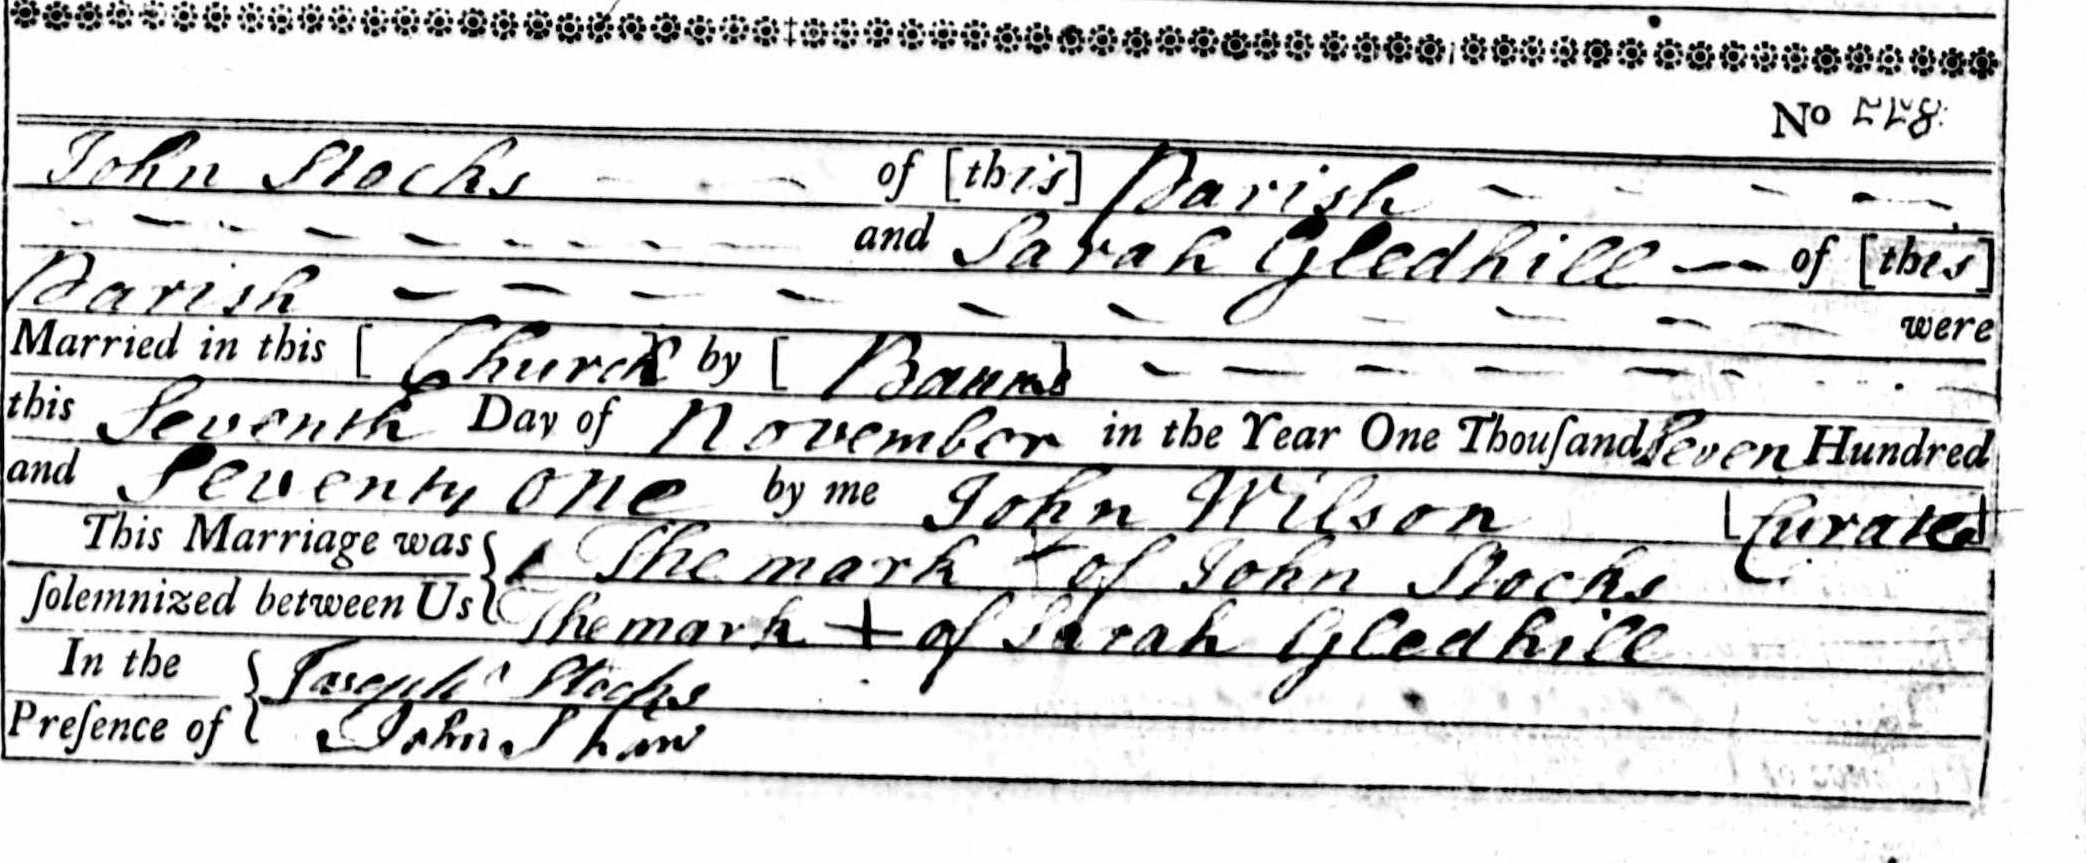 No
John Stocks of [this] Parish
and Sarah Gledhill of [this]
Parish were
Married in this [Church] by [Banns]
this Seventh Day of November in the Year One Thouſand Seven Hundred
and Seventy one by me John Wilson [Curate]
This Marriage was { The mark + of John Stocks
ſolemnized between Us { The mark + of Sarah Gledhill
In the { Joseph Stocks
Preſence of { John Shaw